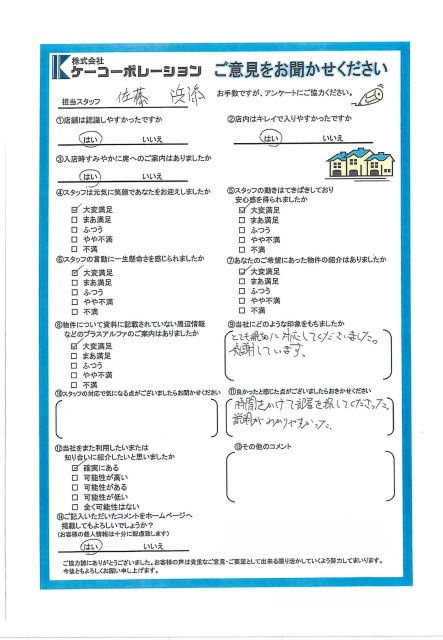 株式会社
ケーコーポレーション ご意見をお聞かせください
担当スタッフ 佐藤 浜添 お手数ですが、アンケートにご協力ください。
①店舗は認識しやすかったですか
はい いいえ
②店内はキレイで入りやすかったですか
はい いいえ
③入店時すみやかに席へのご案内はありましたか
はい いいえ
④スタッフは元気に笑顔であなたをお迎えしましたか
☑ 大変満足
□ まあ満足
□ ふつう
□ やや不満
□ 不満
⑤スタッフの動きはてきぱきしており
安心感を得られましたか
☑ 大変満足
□ まあ満足
□ ふつう
□ やや不満
□ 不満
⑥スタッフの言動に一生懸命さを感じられましたか
☑ 大変満足
□ まあ満足
□ ふつう
□ やや不満
□ 不満
⑦あなたのご希望にあった物件の紹介はありましたか
☑ 大変満足
□ まあ満足
□ ふつう
□ やや不満
□ 不満
⑧物件について資料に記載されていない周辺情報
などのプラスアルファのご案内はありましたか
☑ 大変満足
□ まあ満足
□ ふつう
□ やや不満
□ 不満
⑨当社にどのような印象をもちましたか
とても親切に対応してくださいました。
感謝しています。
⑩スタッフの対応で気になる点がございましたらお聞かせください
⑪良かったと感じた点がございましたらおきかせください
時間をかけて部屋を探してくださった。
説明がわかりやすかった。
⑫当社をまた利用したいまたは
知り合いに紹介したいと思いましたか
☑ 確実にある
□ 可能性が高い
□ 可能性がある
□ 可能性が低い
□ 全く可能性はない
⑬その他のコメント
⑭ご記入いただいたコメントをホームページへ
掲載してもよろしいでしょうか？
(お客様の個人情報は十分に配慮致します)
はい いいえ
ご協力誠にありがとうございました。お客様の声は貴重なご意見・ご要望として出来る限り活かしていくよう努力してまいります。
今後ともよろしくお願い申し上げます。